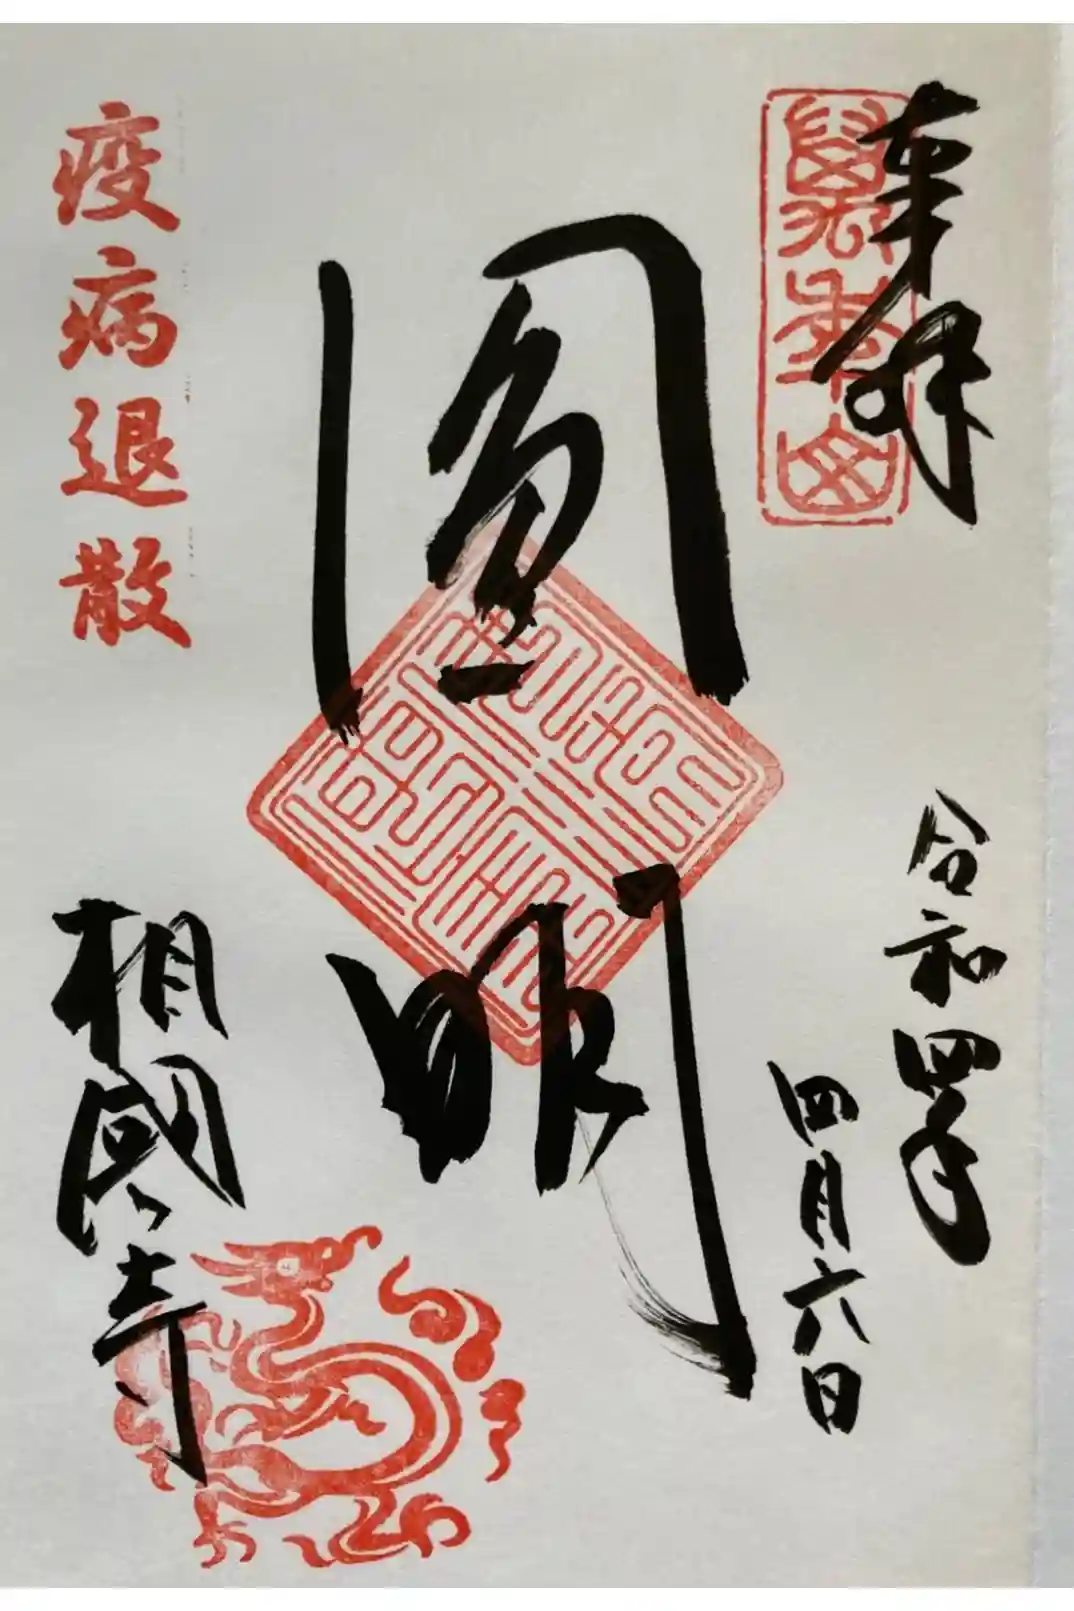 奉拝
萬年山
令和四年
四月六日
圓明
疫病退散
相國寺